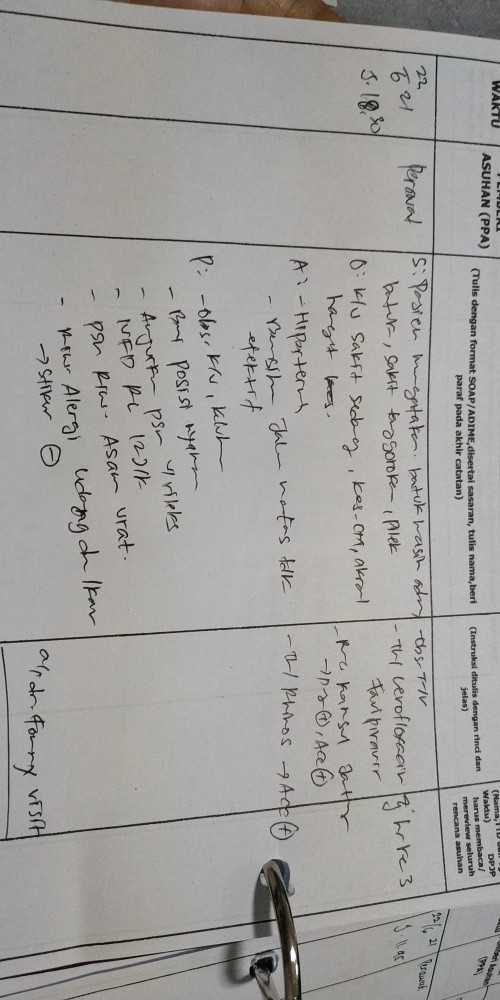 WAKTU
ASUHAN (PPA)
(Tulis dengan format SOAP/ADIME,disertai sasaran, tulis nama,beri
paraf pada akhir catatan)
(Instruksi ditulis dengan rinci dan
jelas)
DPJP
Waktu)
harus membaca/
mereview seluruh
rencana asuhan
22
6 21
J. 18.30
Perawat
S: Pasien mengatakan batuk masih ada,
batuk, sakit tenggorokan, pilek
O: K/U sakit sedang, kes = CM, akral
hangat
A: - Hipertermi
- Bersihan jalan nafas tdk
efektif
P: - Obs. K/U, keluhan
- Beri posisi nyaman
- Anjurkan psn u/ rileks
- IVFD RL 12j/k
- psn riw. Asam urat.
- Riw Alergi udang dn Ikan
→ Stiker ⊖
- Obs TTV
- Th/ Levofloxacin
Favipiravir
hr ke 3
- R/c konsul
Acc (+)
- Th/ Rhinos → Acc (+)
visit
22/6 21
Perawat